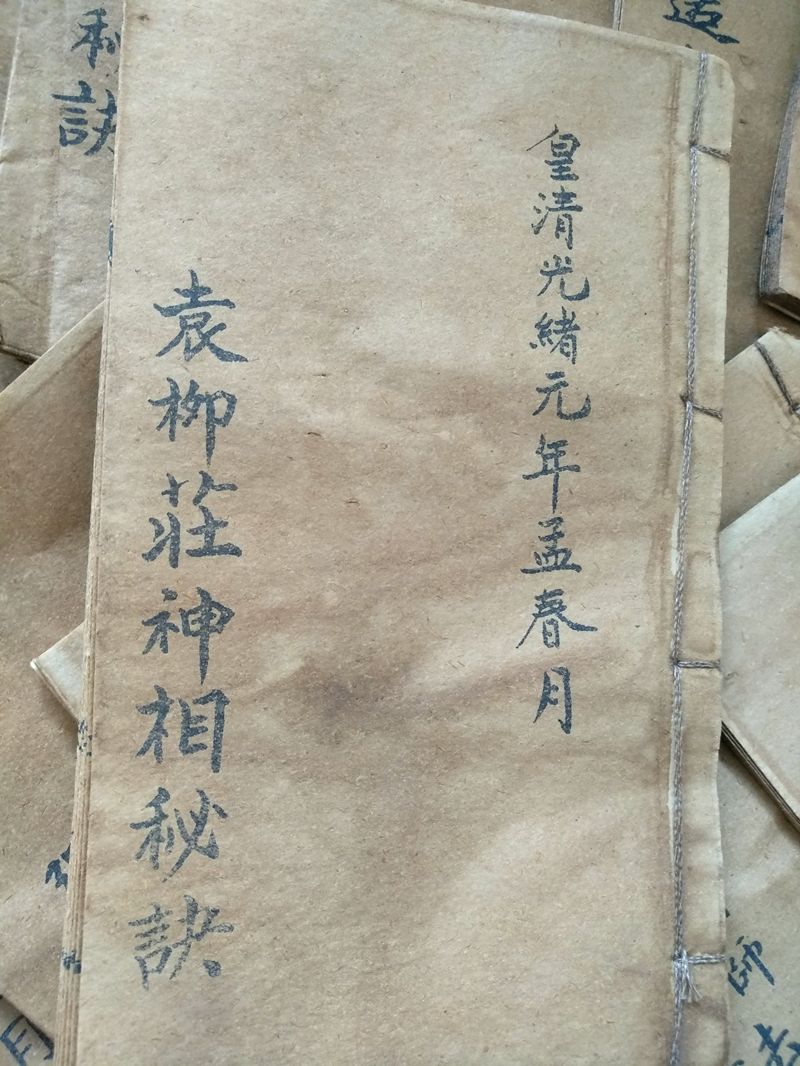 皇清光緒元年孟春月
袁柳莊神相秘訣
訣
師